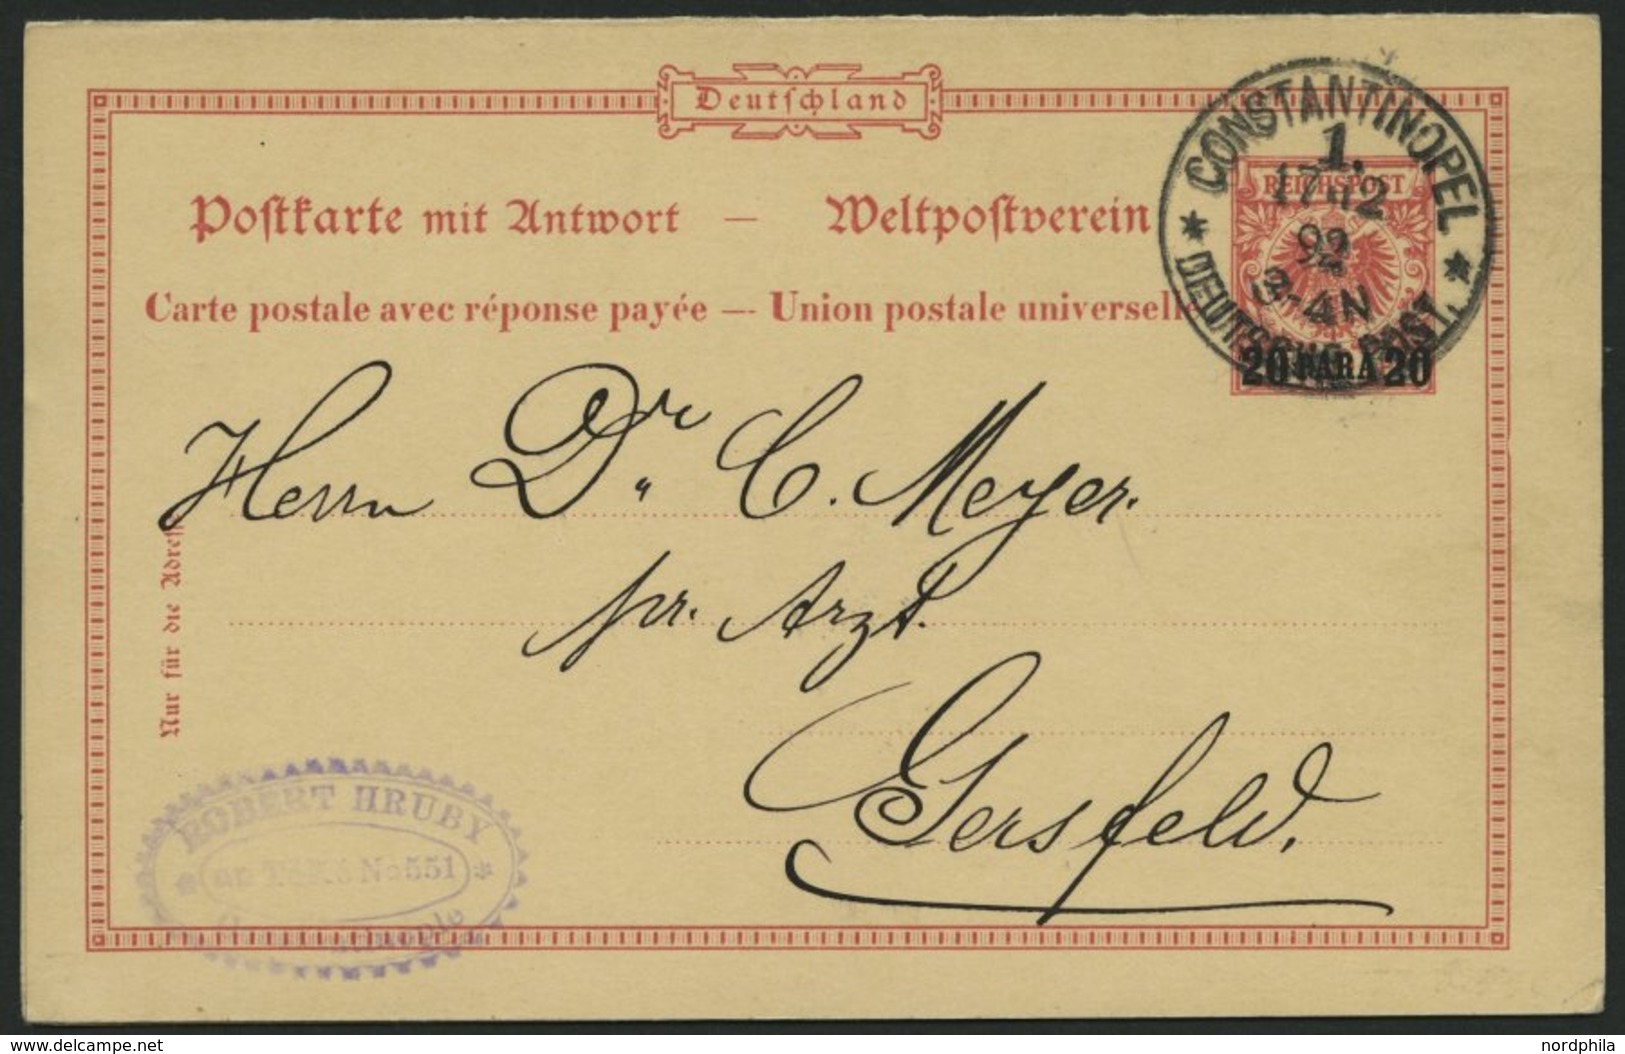 Deutschland
Postkarte mit Antwort — Weltpostverein
Carte postale avec réponse payée — Union postale universelle
CONSTANTINOPEL
1.
17 12
92
3-4N
DEUTSCHE POST.
REICHSPOST
20 PARA 20
Herrn Dr. C. Meyer.
pr. Arzt.
Gersfeld.
Nur für die Adresse
ROBERT HRUBY
No 551
www.delcampe.net
nordphila